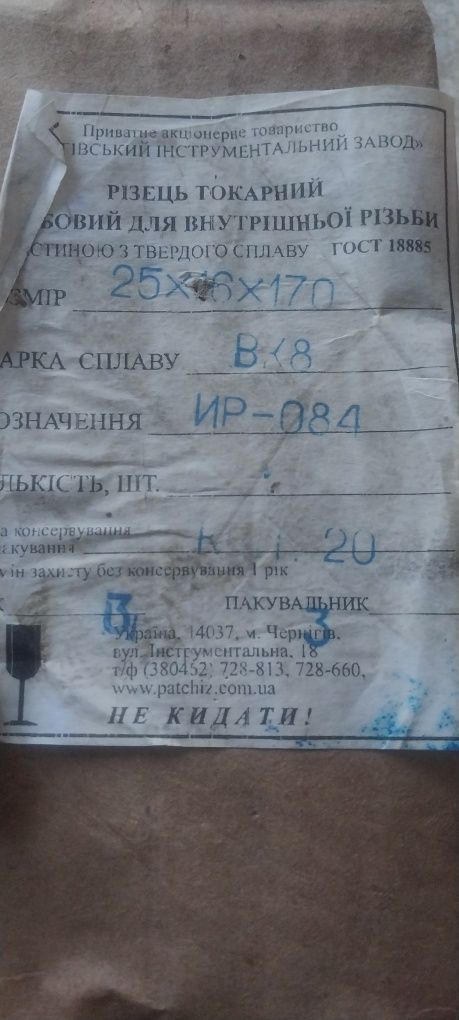 Приватне акціонерне товариство
ГІВСЬКИЙ ІНСТРУМЕНТАЛЬНИЙ ЗАВОД»
РІЗЕЦЬ ТОКАРНИЙ
БОВИЙ ДЛЯ ВНУТРІШНЬОЇ РІЗЬБИ
СТИНОЮ З ТВЕРДОГО СПЛАВУ ГОСТ 18885
ЗМІР 25х16х170
АРКА СПЛАВУ ВК8
ОЗНАЧЕННЯ ИР-084
ЛЬКІСТЬ, ШТ.
а консервування
акування 20
ін захисту без консервування 1 рік
К ПАКУВАЛЬНИК
3
Україна, 14037, м. Чернігів,
вул. Інструментальна, 18
т/ф (380452) 728-813, 728-660,
www.patchiz.com.ua
НЕ КИДАТИ!